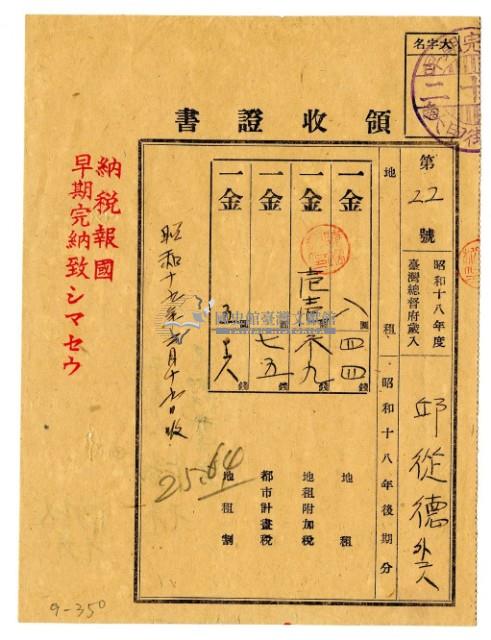 大字名
領收證書
第22號
昭和十八年度
臺灣總督府歲入
邱從德 外二人
地租
昭和十八年後期分
一金 八圓四四錢 地租
一金 壱壱圓八九錢 地租附加税
一金 七五錢 都市計畫税
一金 錢 地租割
昭和十九年 月十 日收
25.64
納税報國
早期完納致シマセウ
國史館臺灣文獻館
9-350